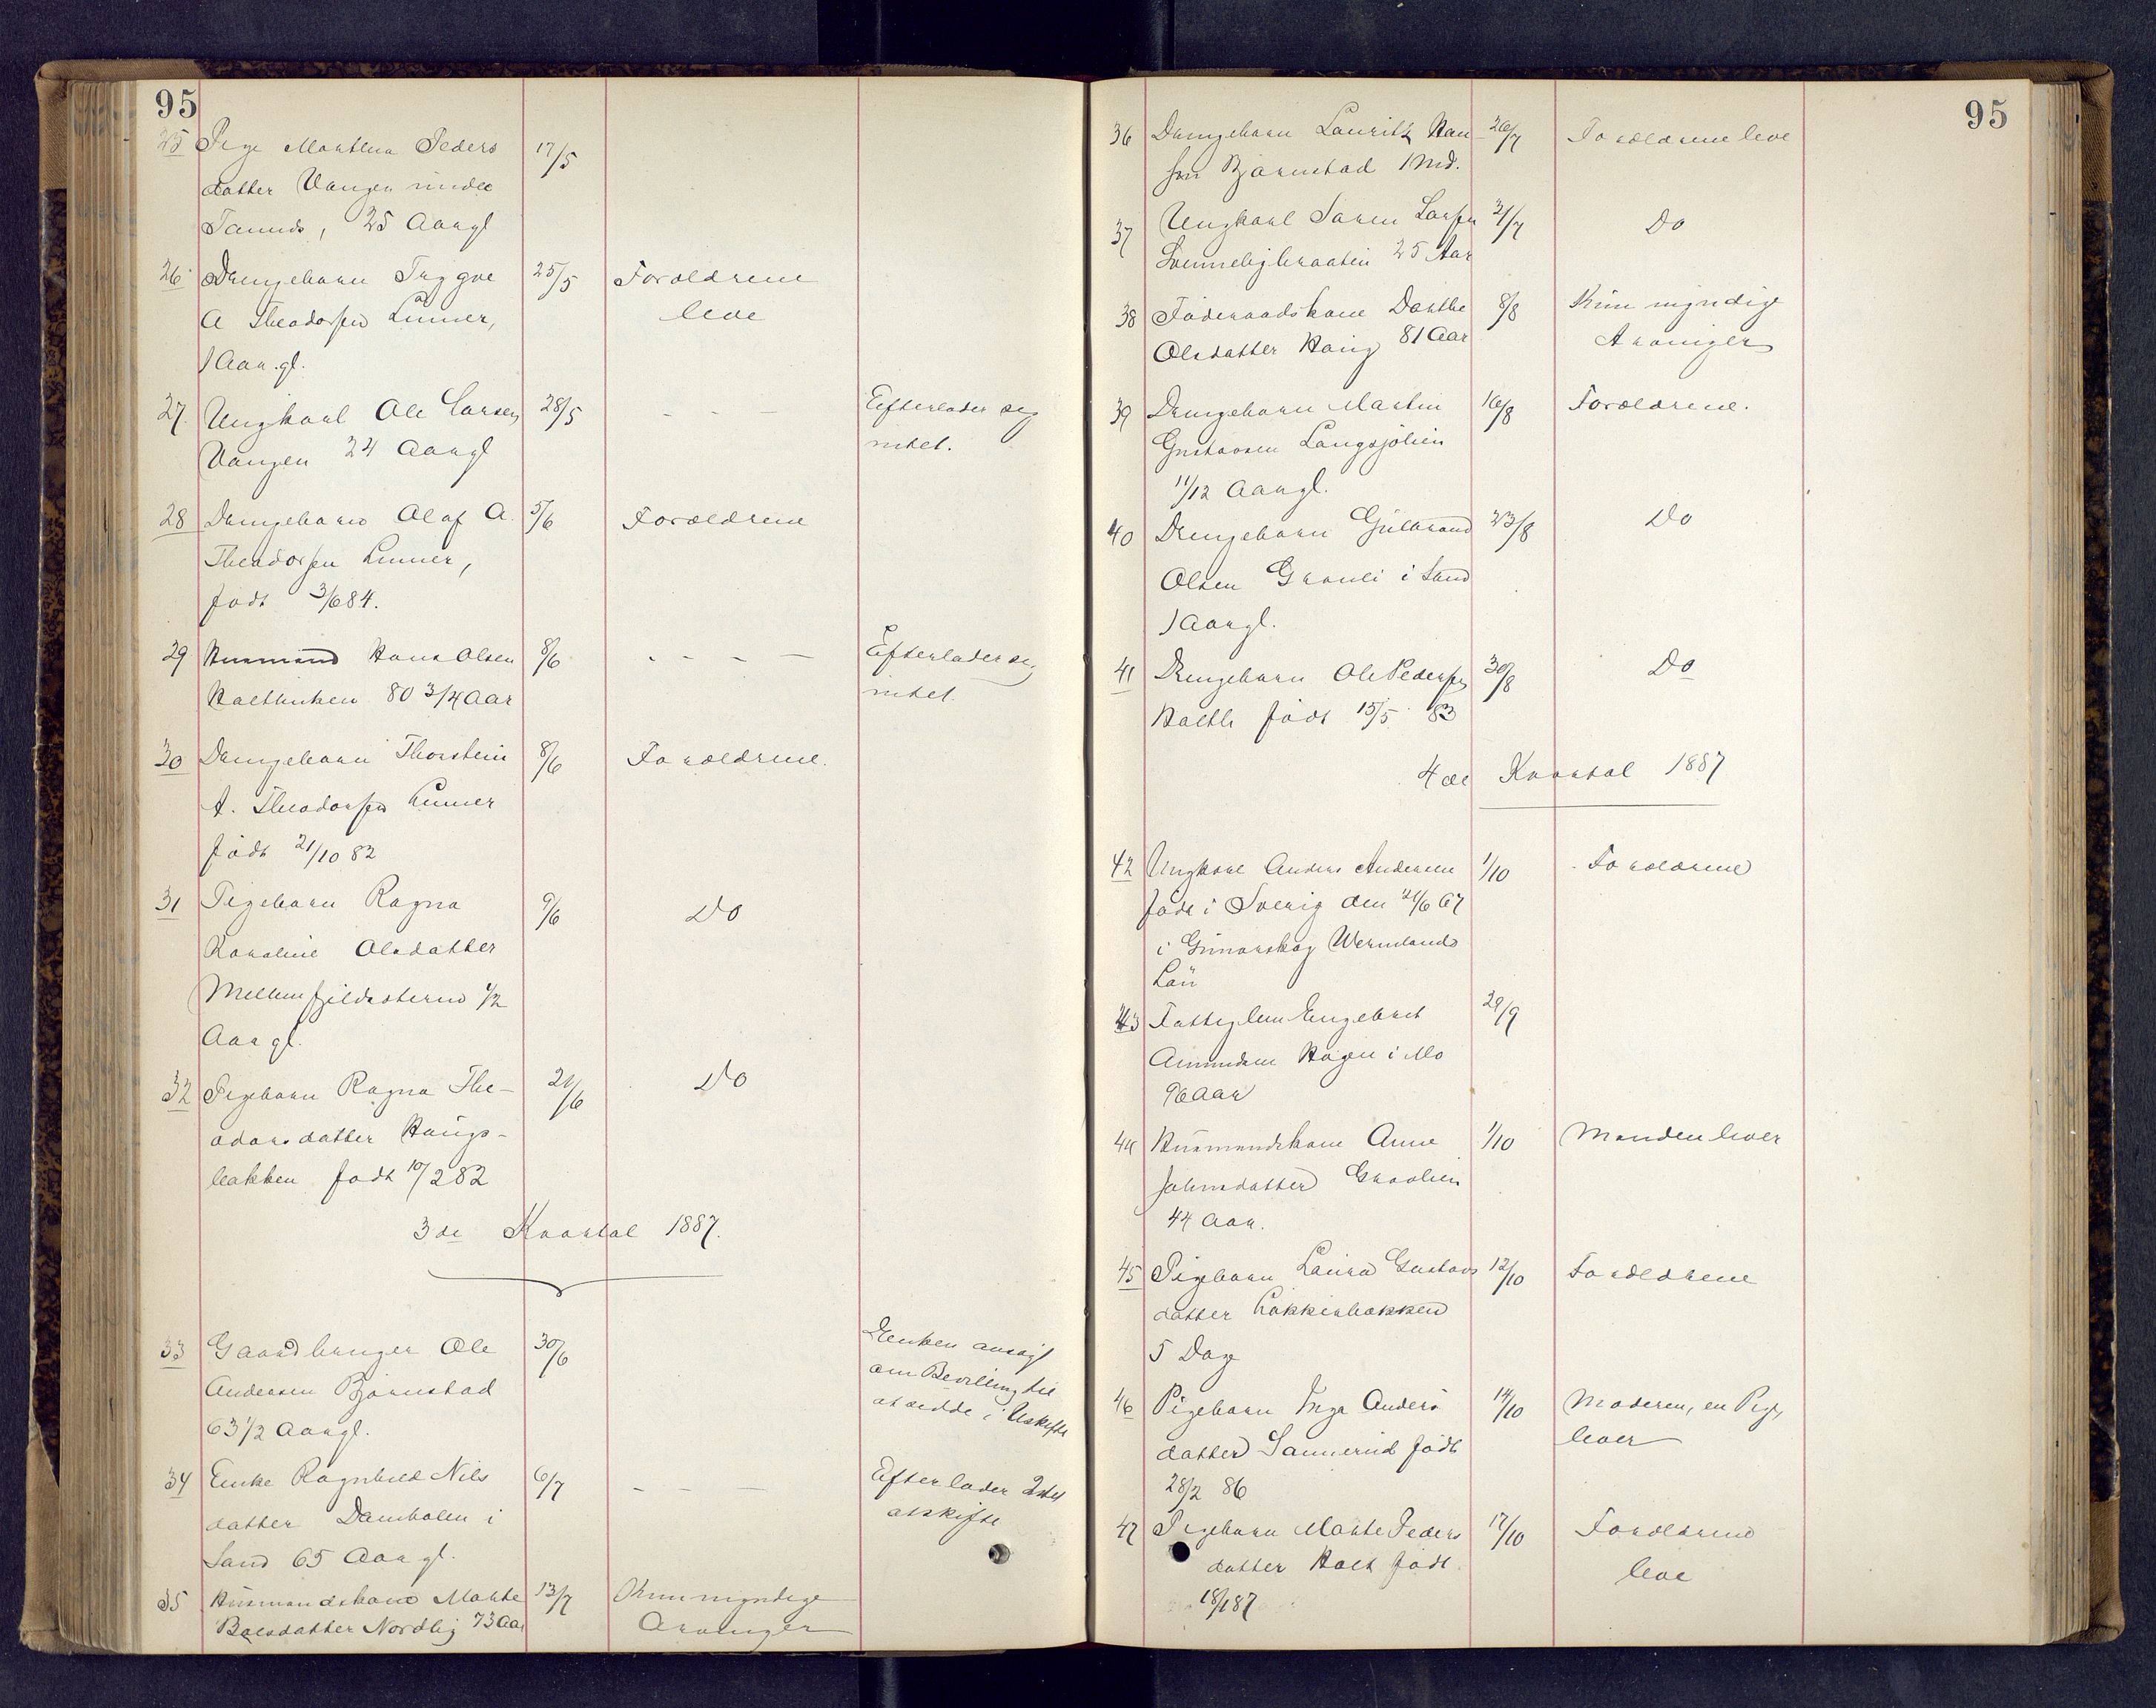 95
25 Pige Marthea Peders 17/5
datter Vangen under
Tannds, 25 Aargl
26 Drengebarn Trygve 25/5 Forældrene
A Theodorsen Lunner, leve
1 Aar.gl.
27. Ungkarl Ole Larsen 28/5 - - - Efterlader sig
Vangen 24 Aargl intet.
28 Drengebarn Olaf A. 5/6 Forældrene
Theodorsen Lunner,
født 3/6 84.
29 Husmand Hans Olsen 8/6 - - - - Efterlader sig
80 3/4 Aar intet.
30 Drengebarn Thorstein 8/6 Forældrene.
A. Theodorsen Lunner
født 21/10 82
31 Pigebarn Ragna 9/6 Do
Karoline Olsdatter
1/2
Aar gl.
32 Pigebarn Ragna The- 21/6 Do
odorsdatter Haugs-
bakken født 10/2 82
3de Kvartal 1887.
33 Gaardbruger Ole 30/6 Enken ansøgt
Andersen Bjørnstad om Bevilling til
63 1/2 Aargl. at sidde i Uskifte
34 Enke Ragnhild Nils 6/7 - - - Efterlader Intet
datter Damholen i at skifte
Sand 65 Aar gl.
35 Husmandskone Marthe 13/7 Kun myndige
Boesdatter Nordby 73 Aar Arvinger
95
36 Drengebarn Lauritz Han- 26/7 Forældrene leve
sen Bjørnstad 1 Md.
37 Ungkarl Søren Larsen 31/7 Do
Svennebybraaten 25 Aar
38 Føderaadskone Dorthe 8/8 Kun myndige
Olsdatter Haug 81 Aar Arvinger
39 Drengebarn Martin 16/8 Forældrene.
Gustavsen Langsjølien
11/12 Aargl.
40 Drengebarn Gulbrand 23/8 Do
Olsen Granli i Sand
1 Aargl.
41 Drengebarn Ole Pedersen 30/8 Do
født 15/5 83
4de Kvartal 1887
42 Ungkarl Anders Andersen 1/10 Forældrene
født i Sverig den 21/6 67
i Gunarskog Wermlands
Län
43 Fattiglem Engebret 29/9
Amundsen Hagen i Mo
96 Aar
44 Husmandskone Anne 1/10 Manden lever
Johnsdatter Graalien
44 Aar.
45 Pigebarn Laura Gustavs 12/10 Forældrene
datter Løkkenbakken
5 Dage
46 Pigebarn Inga Anders 14/10 Moderen, en Pige,
datter Sannerud født lever
28/2 86
47 Pigebarn Marte Peders 17/10 Forældrene
datter Holt født leve
18/1 87